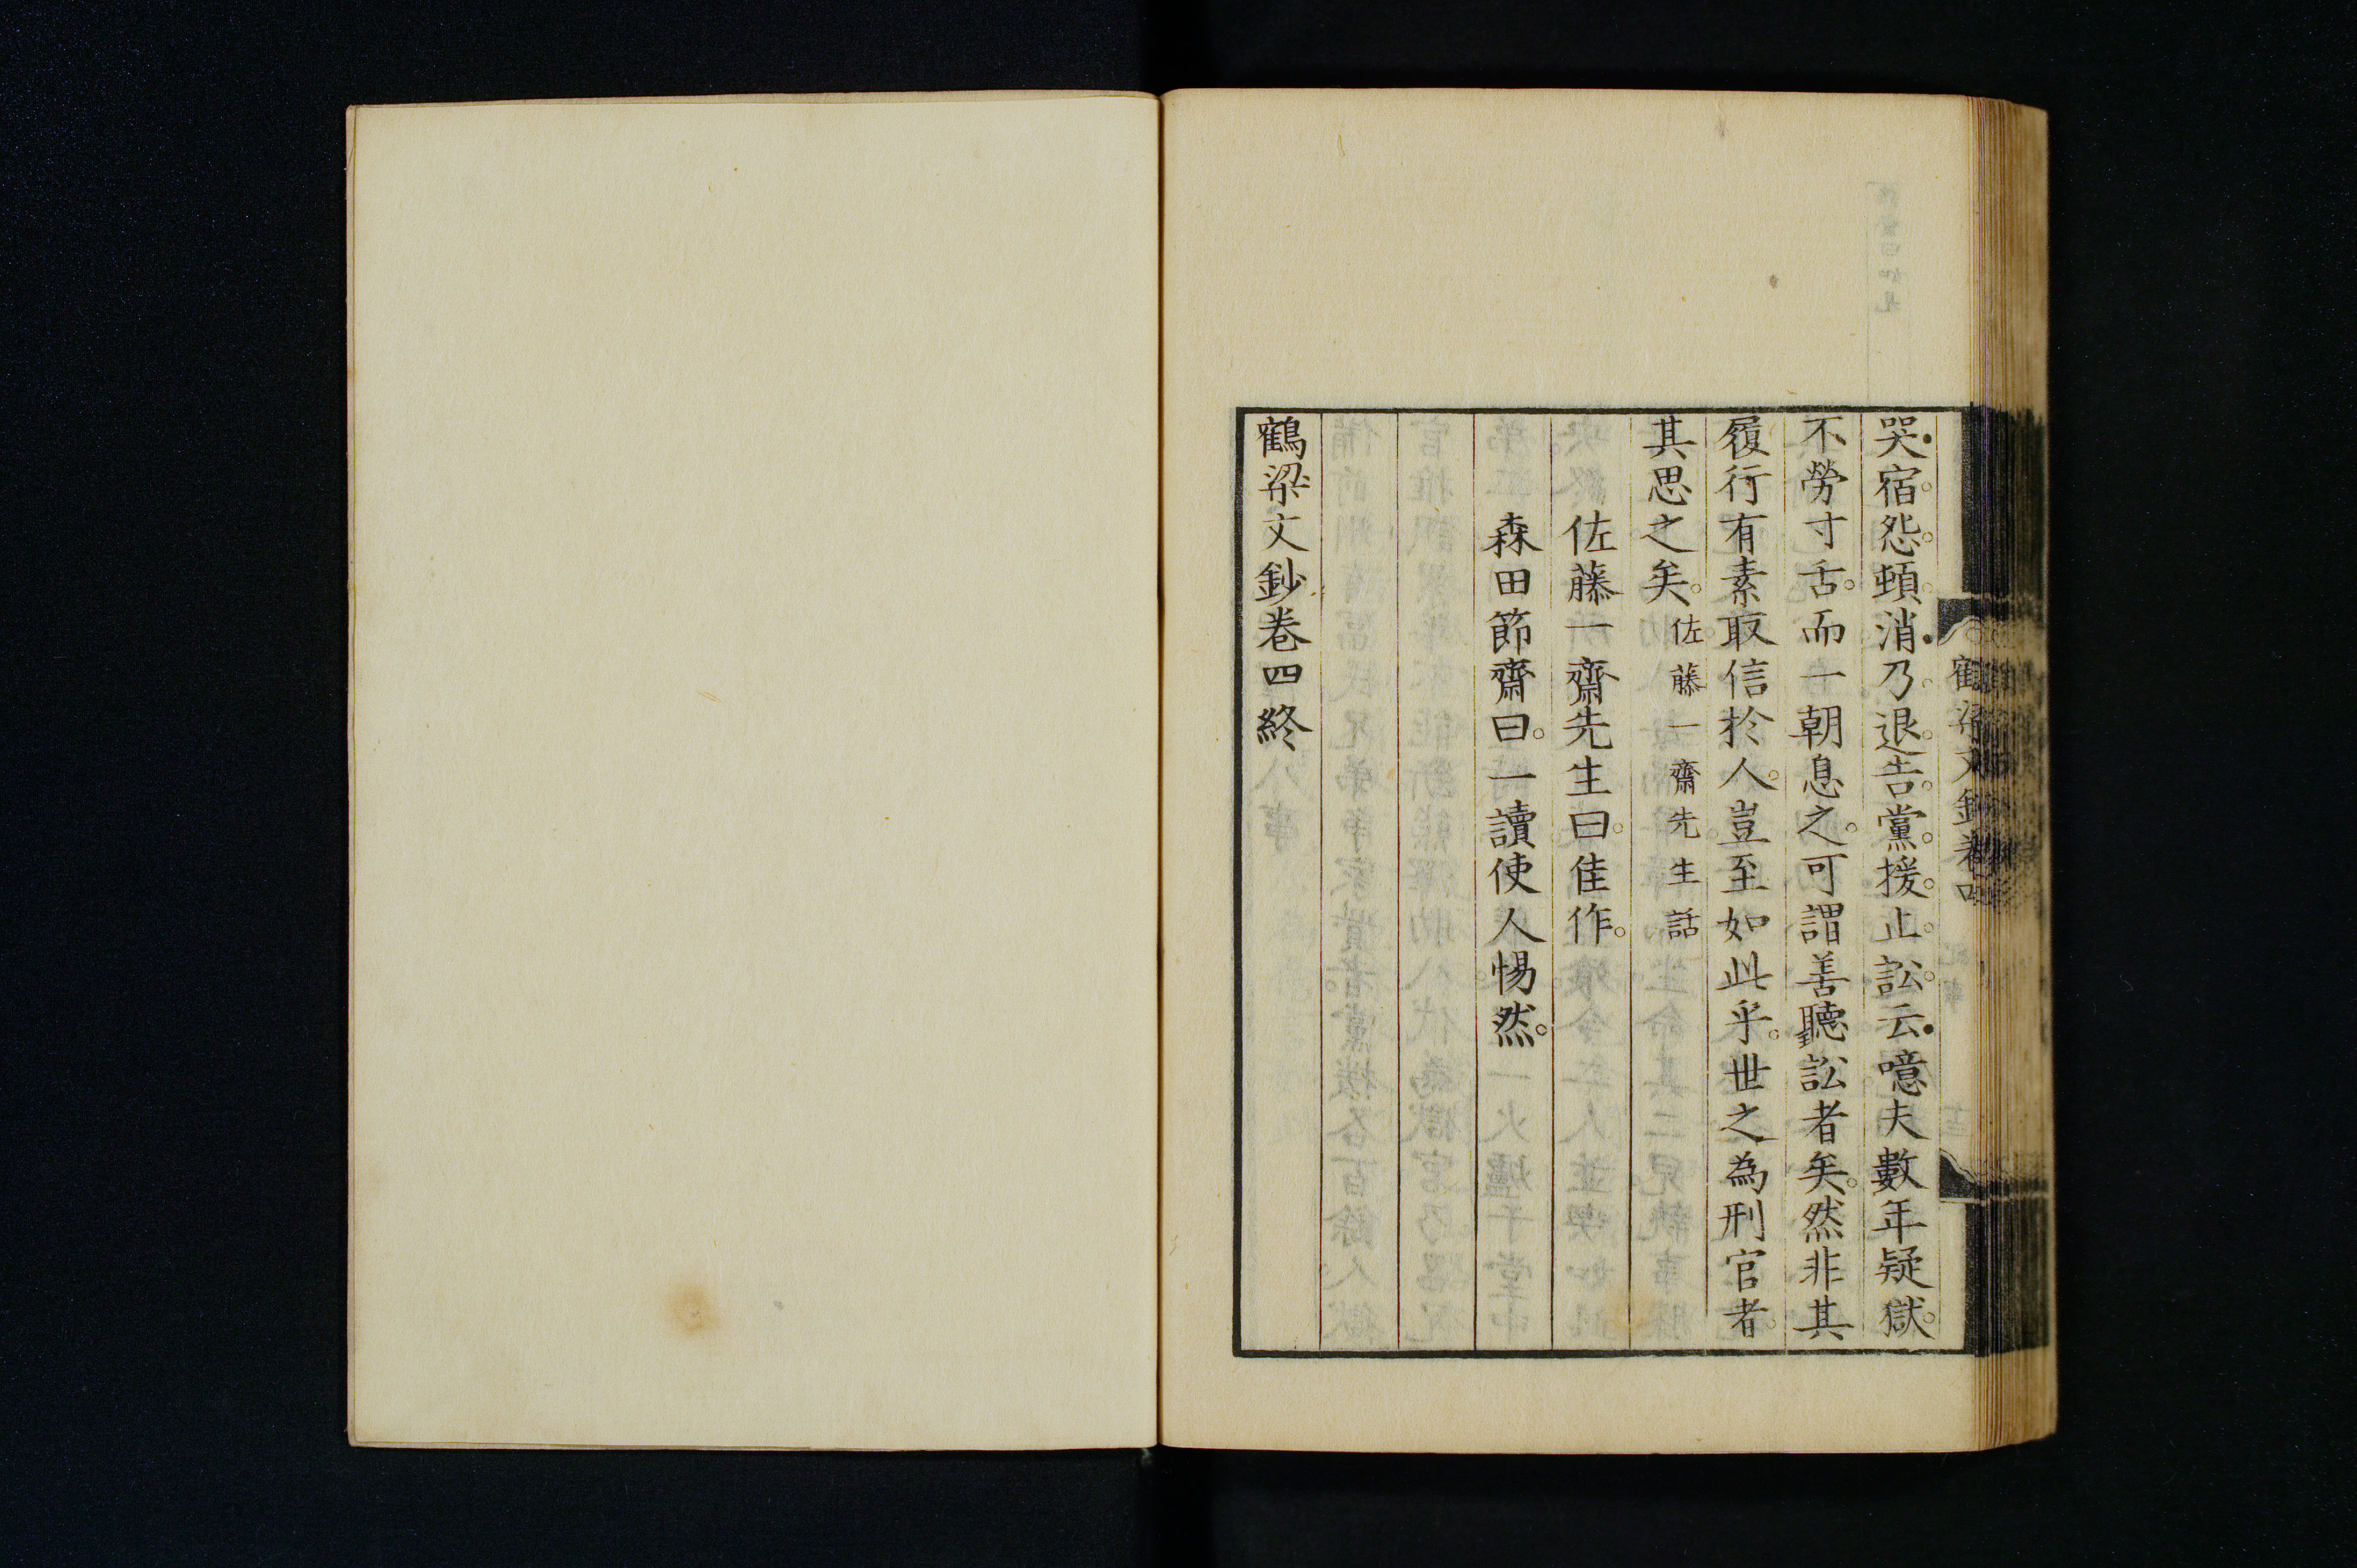 哭宿怨頓消乃退告黨援止訟云噫夫數年疑獄。
不勞寸舌。而一朝息之。可謂善聽訟者矣。然非其
履行有素取信於人。豈至如此乎。世之為刑官者。
其思之矣。佐藤一齋先生話
佐藤一齋先生曰。佳作。
森田節齋曰。一讀使人惕然。
鶴梁文鈔卷四終
鶴梁文鈔卷四